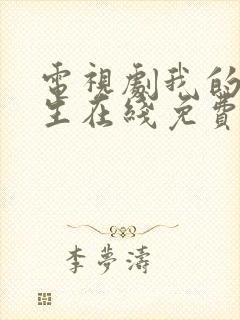 電視劇我的
生在綫免費
李夢濤